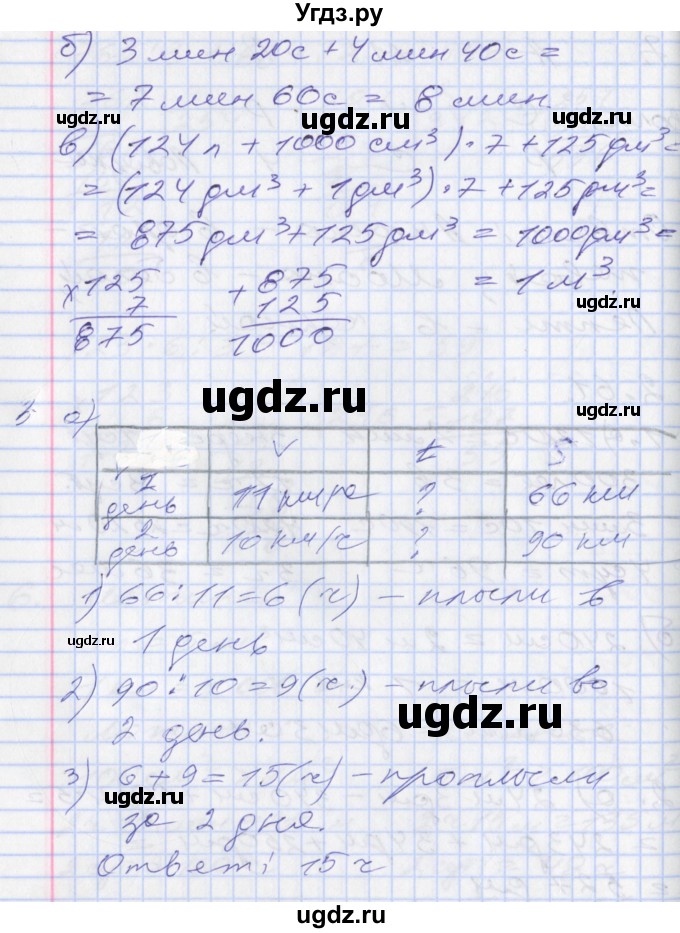 Угдз.ру
б) 3 мин 20с + 4 мин 40с =
= 7 мин 60с = 8 мин.
ugdz.ru
ugdz.ru
в) (124 л + 1000 см³) · 7 + 125 дм³ =
= (124 дм³ + 1 дм³) · 7 + 125 дм³ =
= 875 дм³ + 125 дм³ = 1000 дм³ =
= 1 м³
×125
7
875
+875
125
1000
ugdz.ru
ugdz.ru
ugdz.ru
5 а)
v t S
1 день 11 км/ч ? 66 км
2 день 10 км/ч ? 90 км
1) 66 : 11 = 6 (ч) – плыли в
1 день
ugdz.ru
2) 90 : 10 = 9 (ч.) – плыли во
2 день.
ugdz.ru
3) 6 + 9 = 15 (ч) – проплыли
ugdz.ru
за 2 дня.
ugdz.ru
Ответ: 15 ч
ugdz.ru